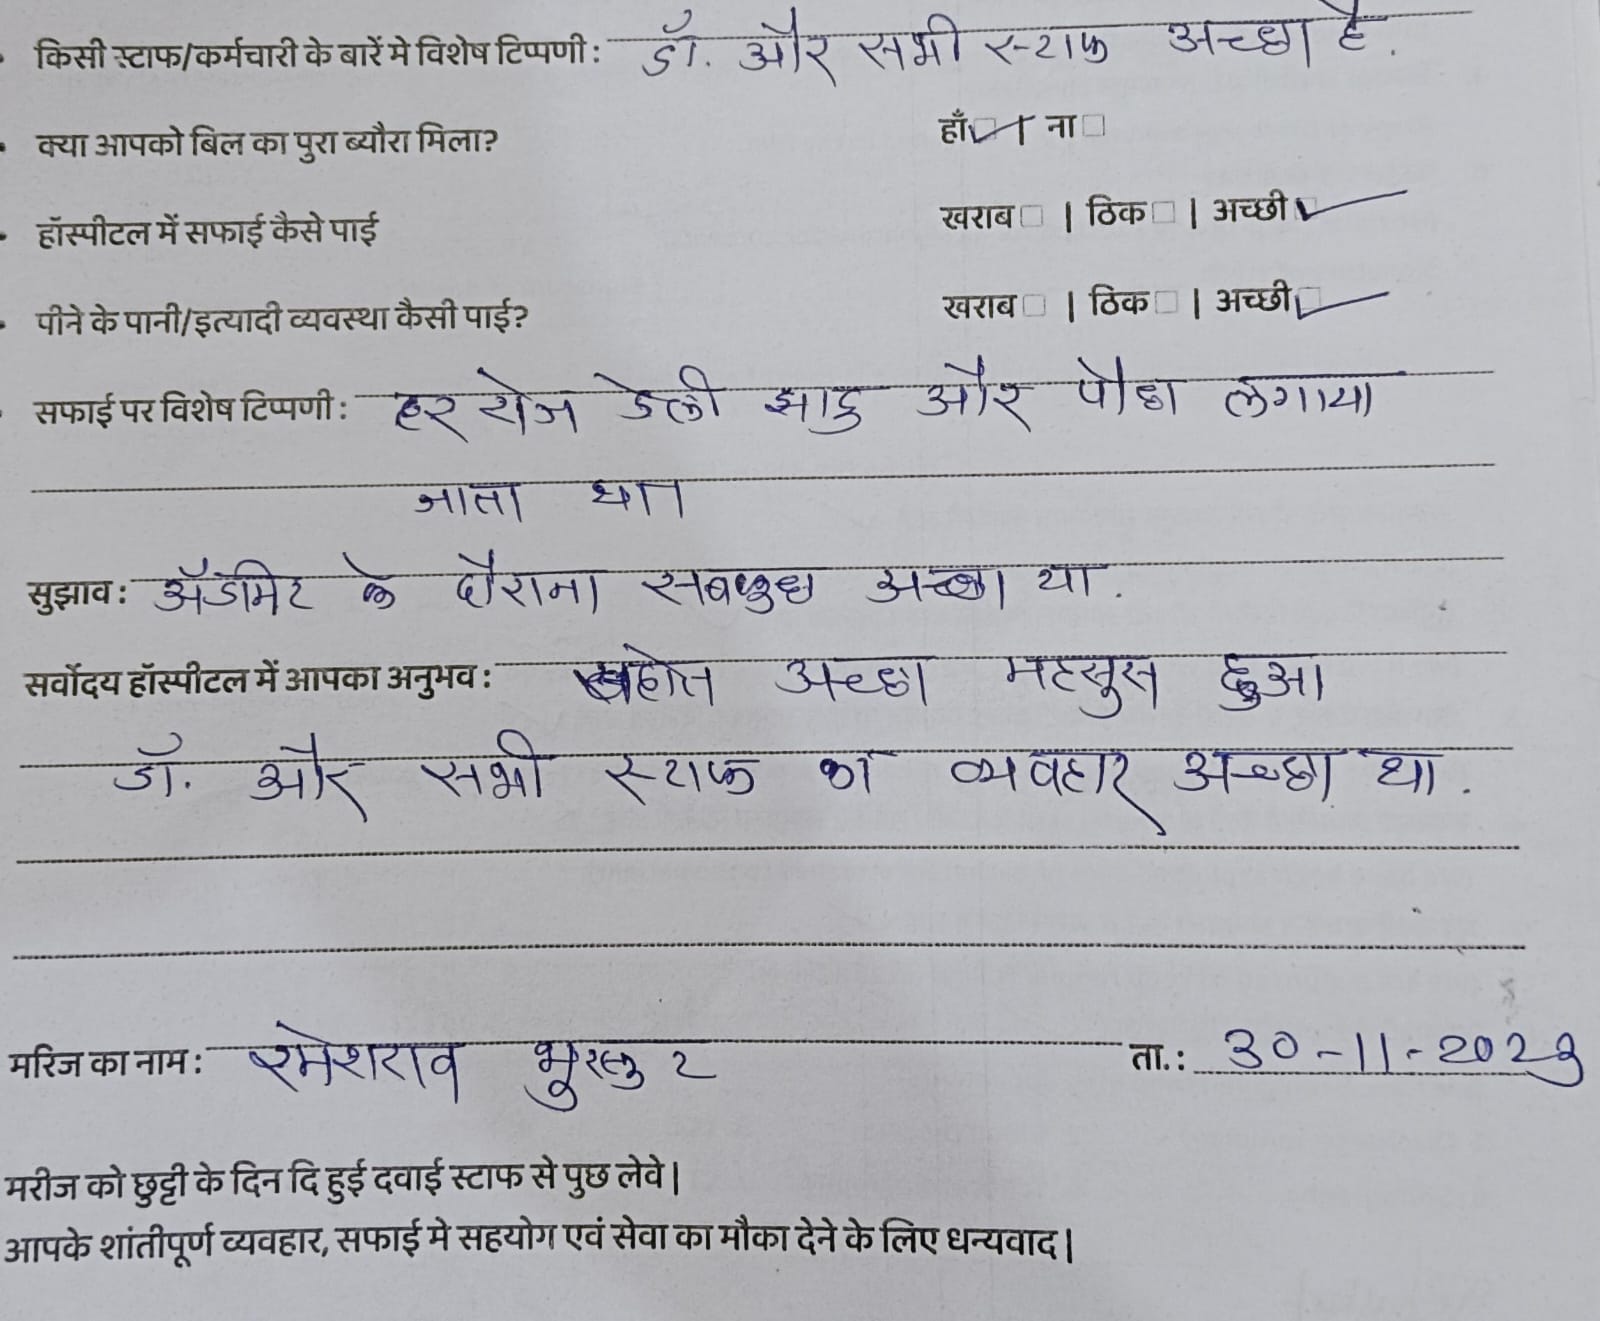 किसी स्टाफ/कर्मचारी के बारें मे विशेष टिप्पणी : डॉ. और सभी स्टाफ अच्छा है.
क्या आपको बिल का पुरा ब्यौरा मिला? हाँ☑ | ना□
हॉस्पीटल में सफाई कैसे पाई खराब□ | ठिक□ | अच्छी☑
पीने के पानी/इत्यादी व्यवस्था कैसी पाई? खराब□ | ठिक□ | अच्छी☑
सफाई पर विशेष टिप्पणी : हर रोज डेली झाडु और पोछा लगाया
जाता था।
सुझाव : ॲडमिट के दौराना सबकुछ अच्छा था.
सर्वोदय हॉस्पीटल में आपका अनुभव : बहोत अच्छा महसुस हुआ
डॉ. और सभी स्टाफ का व्यवहार अच्छा था.
मरिज का नाम : रमेशराव ता.: 30-11-2023
मरीज को छुट्टी के दिन दि हुई दवाई स्टाफ से पुछ लेवे।
आपके शांतीपूर्ण व्यवहार, सफाई मे सहयोग एवं सेवा का मौका देने के लिए धन्यवाद।